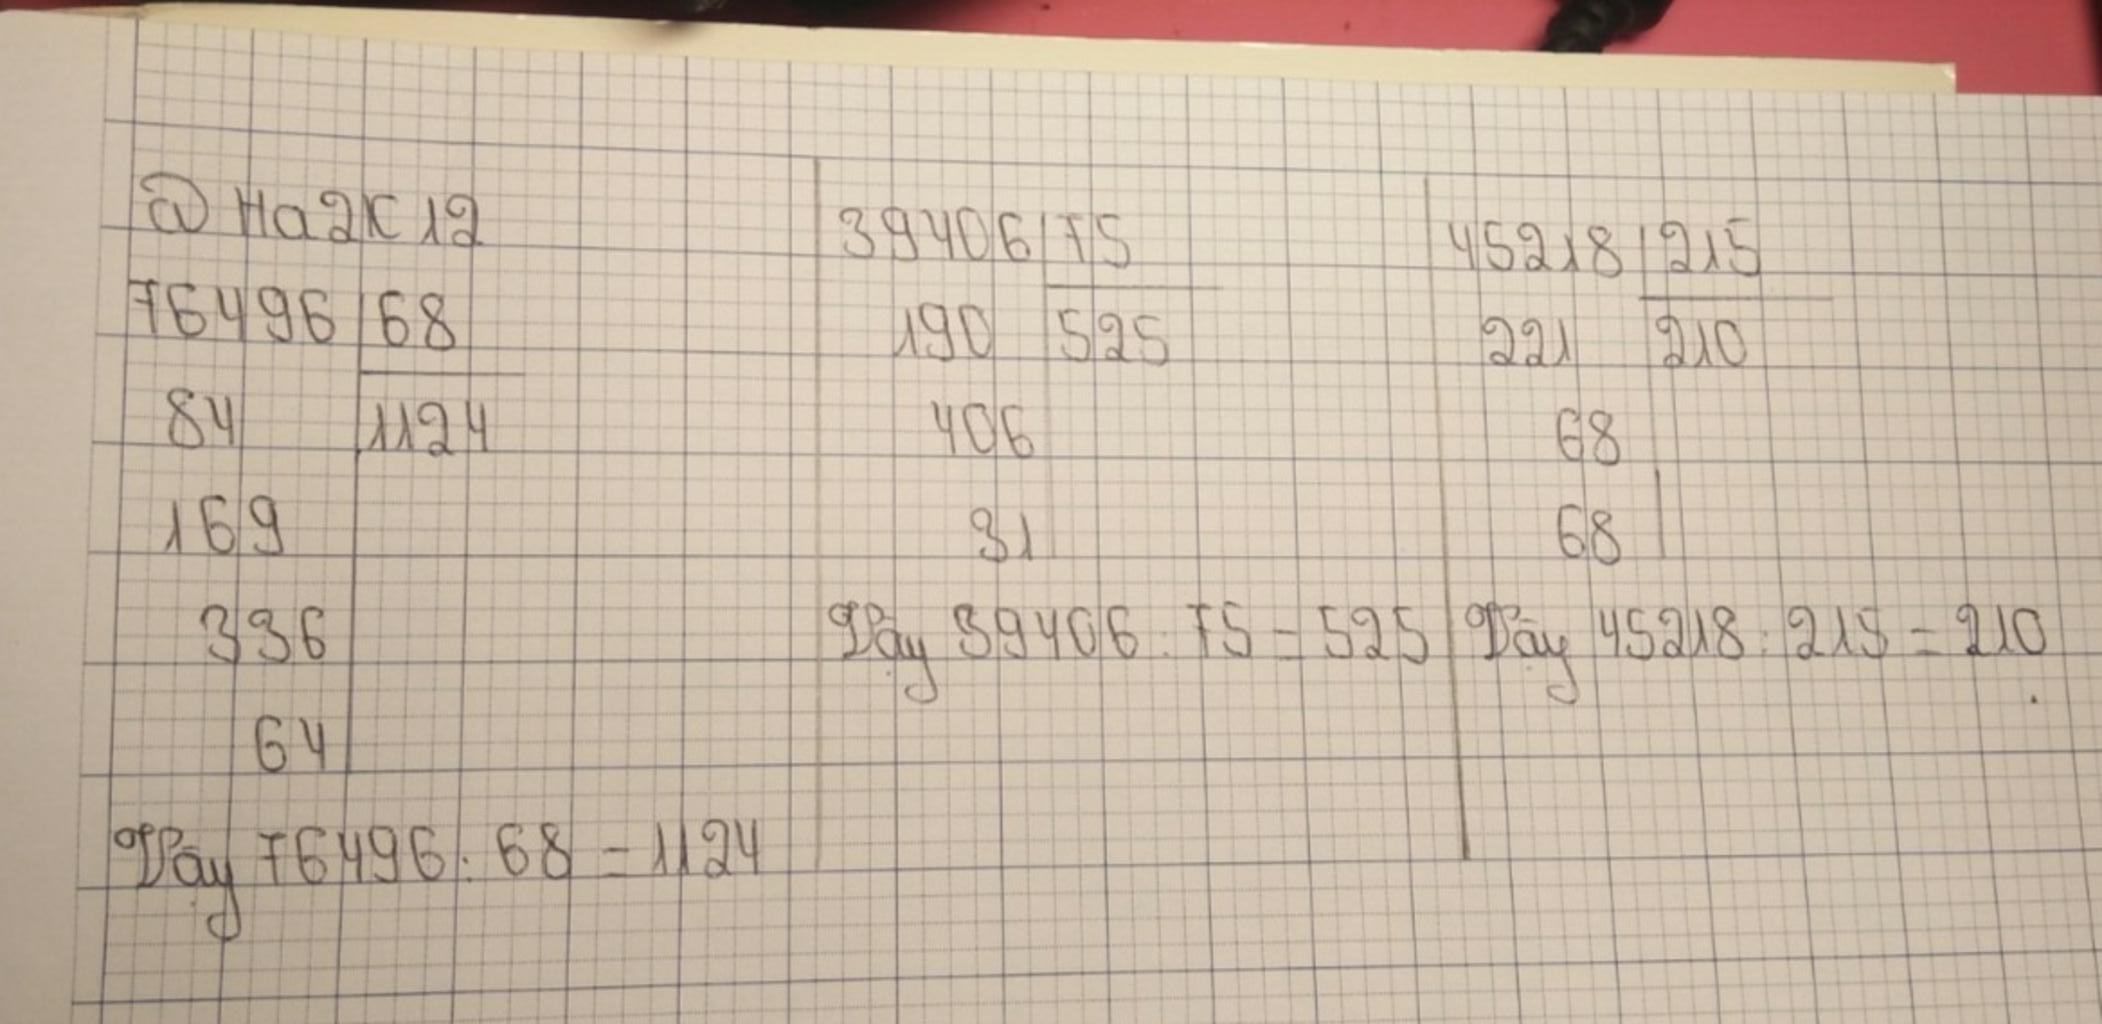 @ Ha2K12
76496 68
84 1124
169
336
64
Vậy 76496 : 68 = 1124
39406 75
190 525
406
31
Vậy 39406 : 75 = 525
45218 215
221 210
68
68
Vậy 45218 : 215 = 210